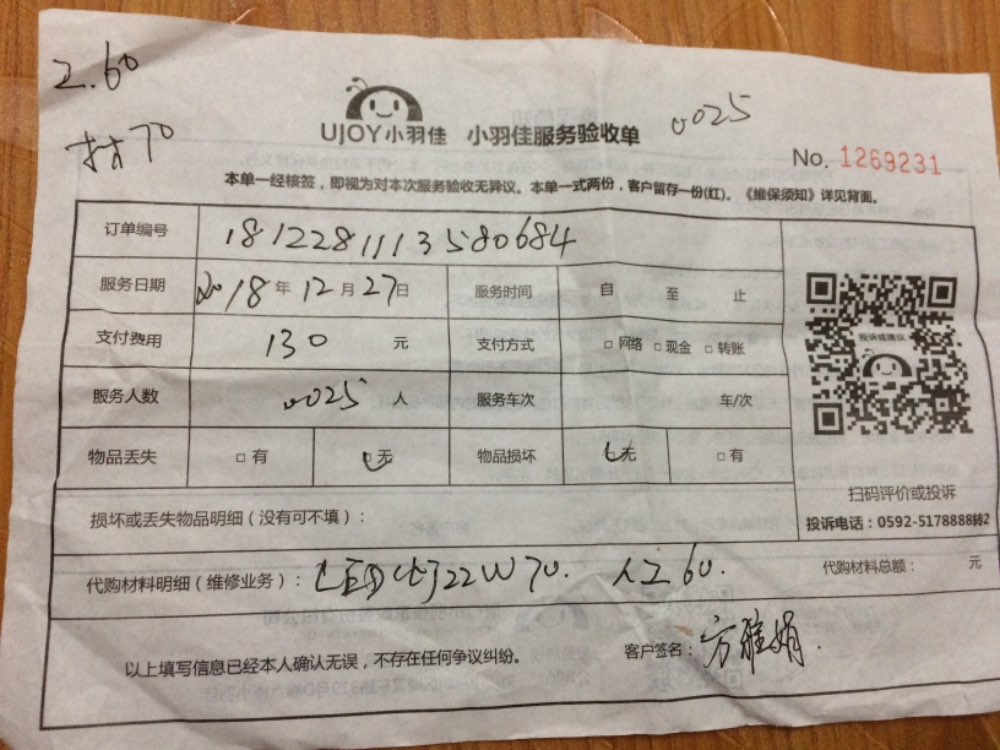 2.60
材70
UJOY小羽佳 小羽佳服务验收单
0025
No. 1269231
本单一经核签，即视为对本次服务验收无异议。本单一式两份，客户留存一份(红)。《维保须知》详见背面。
订单编号 1812281113580684
服务日期 2018年12月27日 服务时间 自 至 止
支付费用 130 元 支付方式 □网络 □现金 □转账
服务人数 0025 人 服务车次 车/次
物品丢失 □有 □无 物品损坏 □无 □有
投诉或建议
扫码评价或投诉
投诉电话：0592-5178888转2
损坏或丢失物品明细（没有可不填）：
代购材料明细（维修业务）：LED灯22W70. 人工60. 代购材料总额： 元
以上填写信息已经本人确认无误，不存在任何争议纠纷。 客户签名：方雅娟.